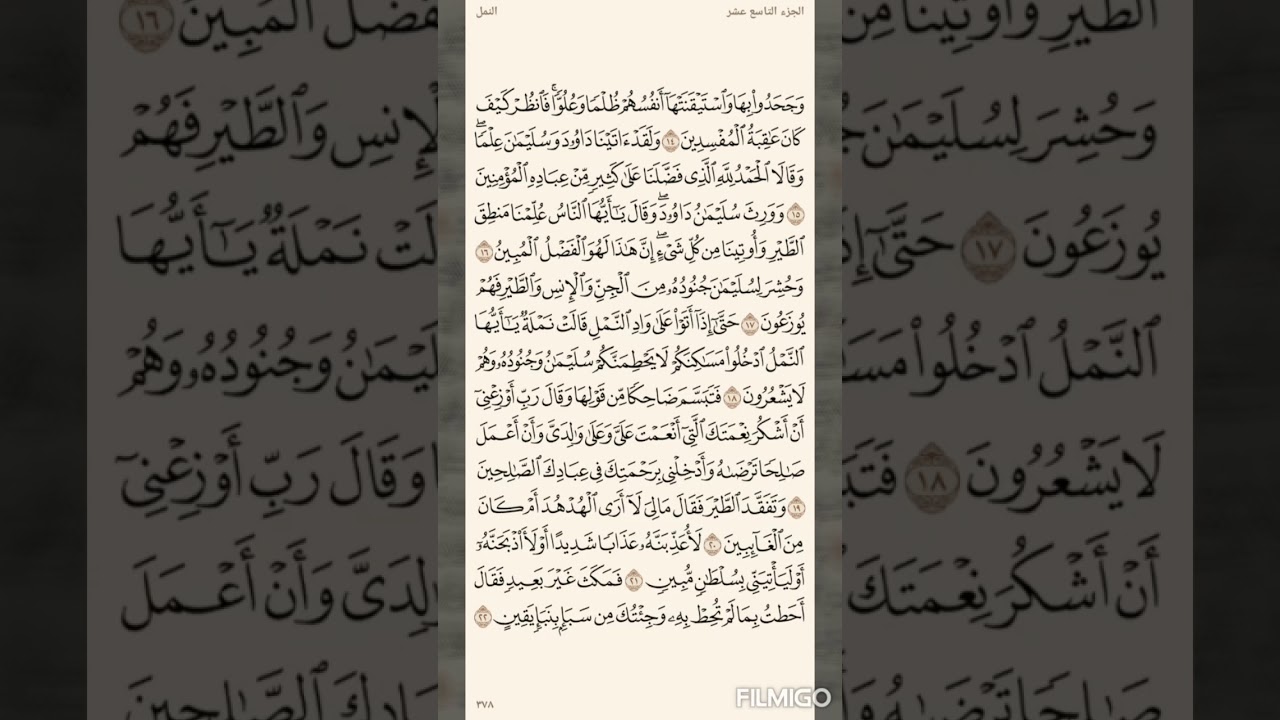 الجزء التاسع عشر
النمل
وَجَحَدُوا۟ بِهَا وَٱسْتَيْقَنَتْهَآ أَنفُسُهُمْ ظُلْمًا وَعُلُوًّا ۚ فَٱنظُرْ كَيْفَ
كَانَ عَـٰقِبَةُ ٱلْمُفْسِدِينَ ١٤ وَلَقَدْ ءَاتَيْنَا دَاوُۥدَ وَسُلَيْمَـٰنَ عِلْمًا ۖ
وَقَالَا ٱلْحَمْدُ لِلَّهِ ٱلَّذِى فَضَّلَنَا عَلَىٰ كَثِيرٍ مِّنْ عِبَادِهِ ٱلْمُؤْمِنِينَ
١٥ وَوَرِثَ سُلَيْمَـٰنُ دَاوُۥدَ ۖ وَقَالَ يَـٰٓأَيُّهَا ٱلنَّاسُ عُلِّمْنَا مَنطِقَ
ٱلطَّيْرِ وَأُوتِينَا مِن كُلِّ شَىْءٍ ۖ إِنَّ هَـٰذَا لَهُوَ ٱلْفَضْلُ ٱلْمُبِينُ ١٦
وَحُشِرَ لِسُلَيْمَـٰنَ جُنُودُهُۥ مِنَ ٱلْجِنِّ وَٱلْإِنسِ وَٱلطَّيْرِ فَهُمْ
يُوزَعُونَ ١٧ حَتَّىٰٓ إِذَآ أَتَوْا۟ عَلَىٰ وَادِ ٱلنَّمْلِ قَالَتْ نَمْلَةٌ يَـٰٓأَيُّهَا
ٱلنَّمْلُ ٱدْخُلُوا۟ مَسَـٰكِنَكُمْ لَا يَحْطِمَنَّكُمْ سُلَيْمَـٰنُ وَجُنُودُهُۥ وَهُمْ
لَا يَشْعُرُونَ ١٨ فَتَبَسَّمَ ضَاحِكًا مِّن قَوْلِهَا وَقَالَ رَبِّ أَوْزِعْنِىٓ
أَنْ أَشْكُرَ نِعْمَتَكَ ٱلَّتِىٓ أَنْعَمْتَ عَلَىَّ وَعَلَىٰ وَٰلِدَىَّ وَأَنْ أَعْمَلَ
صَـٰلِحًا تَرْضَىٰهُ وَأَدْخِلْنِى بِرَحْمَتِكَ فِى عِبَادِكَ ٱلصَّـٰلِحِينَ
١٩ وَتَفَقَّدَ ٱلطَّيْرَ فَقَالَ مَا لِىَ لَآ أَرَى ٱلْهُدْهُدَ أَمْ كَانَ
مِنَ ٱلْغَآئِبِينَ ٢٠ لَأُعَذِّبَنَّهُۥ عَذَابًا شَدِيدًا أَوْ لَأَا۟ذْبَحَنَّهُۥٓ
أَوْ لَيَأْتِيَنِّى بِسُلْطَـٰنٍ مُّبِينٍ ٢١ فَمَكَثَ غَيْرَ بَعِيدٍ فَقَالَ
أَحَطتُ بِمَا لَمْ تُحِطْ بِهِۦ وَجِئْتُكَ مِن سَبَإٍۭ بِنَبَإٍ يَقِينٍ ٢٢
٣٧٨
FILMIGO